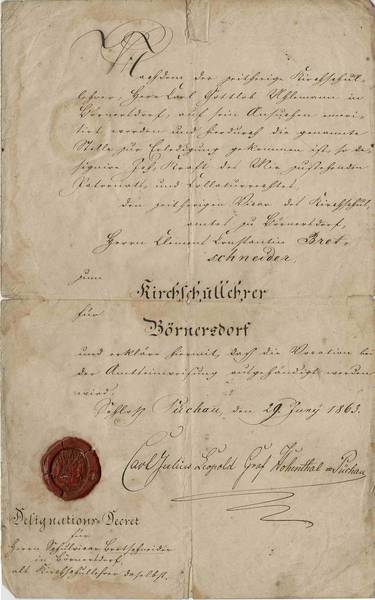 Nachdem der zeitherige Kirchschul-
lehrer, Herr Carl Gottlob Uhlemann in
Börnersdorf, auf sein Ansuchen emeri-
tirt worden und hierdurch die genannte
Stelle zur Erledigung gekommen ist, so de-
signire Ich, Kraft des Mir zustehenden
Patronats- und Collaturrechtes
den zeitherigen Vicar des Kirchschul-
amtes zu Börnersdorf,
Herrn Clemens Constantin Bret-
schneider,
zum
Kirchschullehrer
für
Börnersdorf
und erkläre hiermit, daß die Vocation bei
der Amtseinweisung ausgehändigt werden
wird.
Schloß Püchau, den 29 Juny 1863.
Carl Julius Leopold Graf Hohenthal Püchau
Designations-Decret
für
Herrn Schulvicar Bretschneider
in Börnersdorf
als Kirchschullehrer daselbst.